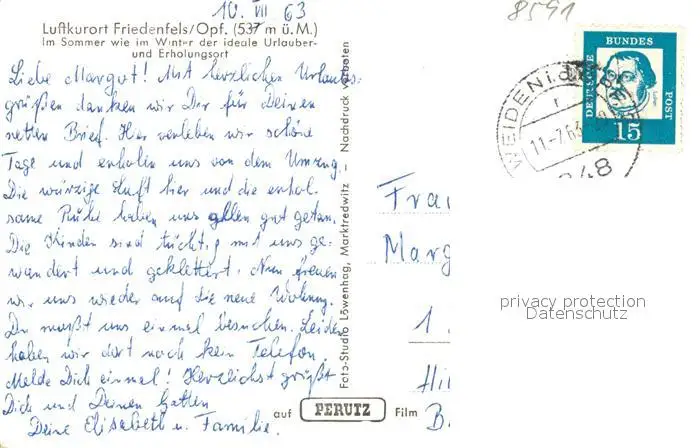 10. VII 63
8591
Luftkurort Friedenfels/Opf. (537 m ü.M.)
Im Sommer wie im Winter der ideale Urlauber-
und Erholungsort
Liebe Margot! Mit herzlichen Urlaubs-
grüßen danken wir Dir für Deinen
netten Brief. Hier verleben wir schöne
Tage und erholen uns von dem Umzug.
Die würzige Luft hier und die erhol-
same Ruhe haben uns allen gut getan.
Die Kinder sind tüchtig mit uns ge-
wandert und geklettert. Nun freuen
wir uns wieder auf die neue Wohnung.
Du mußt uns einmal besuchen. Leider
haben wir dort noch kein Telefon.
Melde Dich einmal! Herzlichst grüßt
Dich und Deinen Gatten
Deine Elisabeth u. Familie.
Foto-Studio Löwenhag, Marktredwitz – Nachdruck verboten
auf PERUTZ Film
DEUTSCHE BUNDES POST
15
WEIDEN
11.-7.63
Marg
1.
privacy protection
Datenschutz